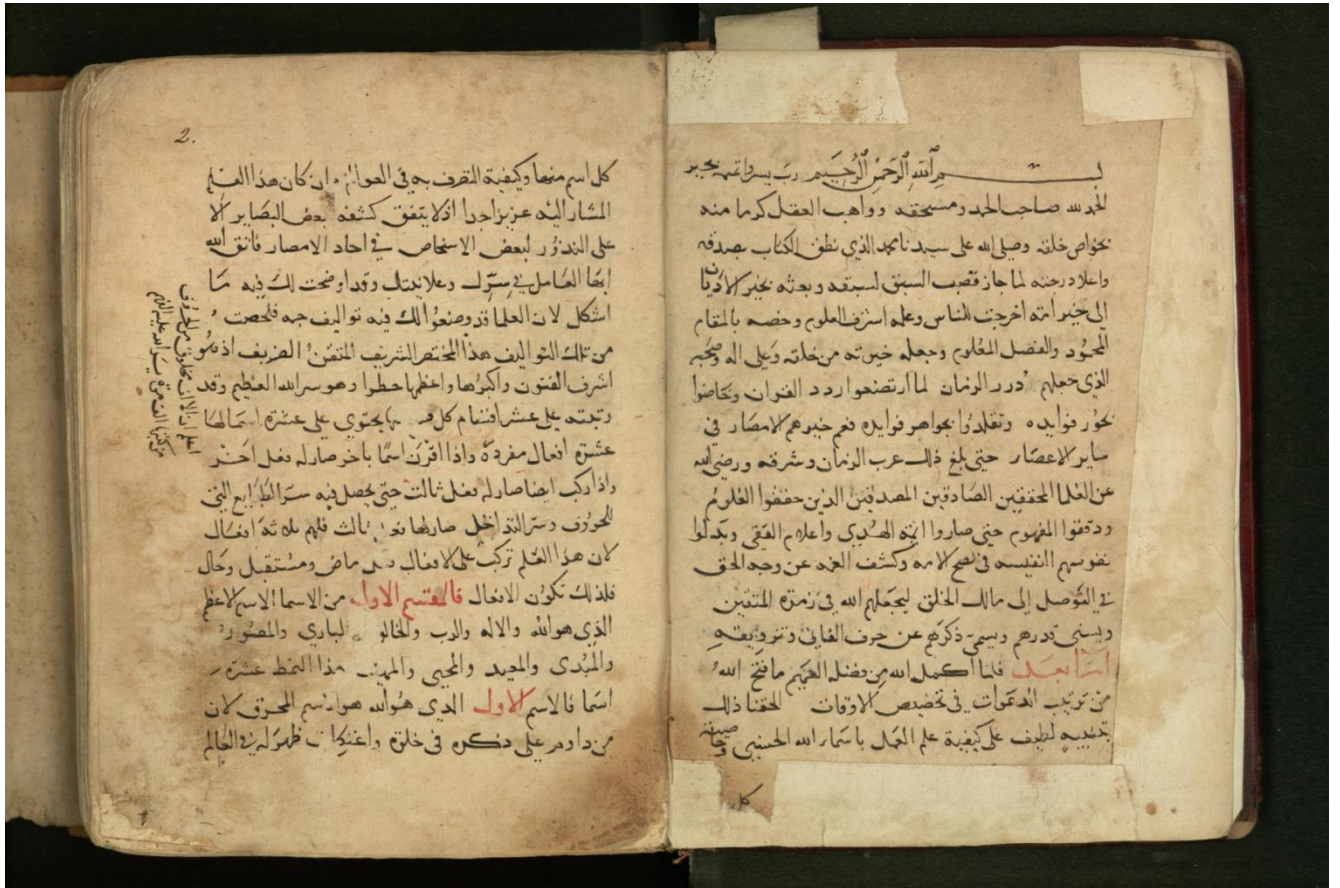 بسم الله الرحمن الرحيم رب يسر واتمم بخير
الحمد لله صاحب الحمد ومستحقه وواهب العقل كرما منه
بخواص خلقه وصلى الله على سيدنا محمد الذي نطق الكتاب بصدقه
واعلا درجته لما حاز قصب السبق لسبقه وبعثه بخير الاديان
الى خير امة اخرجت للناس وعلمه اشرف العلوم وخصه بالمقام
المحمود والفضل المعلوم وجعله خيرته من خلقه وعلى اله وصحبه
الذي جعلهم درر الزمان لما ارتضعوا درر القران وخاضوا
بحور فوايده وتقلدوا بجواهر فوايده فهم خيرهم الامصار في
ساير الاعصار حتى بلغ ذلك عرب الزمان وشرقه ورضي الله
عن العلما المحققين الصادقين المصدقين الذين حققوا العلوم
ودققوا المفهوم حتى صاروا ايمة الهدي واعلام التقى وبدلوا
نفوسهم النفيسه في نصح الامه وكشف الغمه عن وجه الحق
في التوصل إلى مالك الخلق ليجعلهم الله في زمرة المتقين
ويسنى قدرهم ويسمى ذكرهم عن حرف الفاني وتزويقه
اما بعد فلما اكمل الله من فضله العميم ما فتح الله
من ترتيب الدعوات في تخصيص الاوقات الحقنا ذلك
بتنبيه لطيف على كيفية علم العمل باسماء الله الحسنى وخاصية
كل
2.
كل اسم منها وكيفية التصرف به في العوالم وان كان هذا العلم
المشار اليه عزيزا جدا اذ لا يتفق كشفه لبعض البصاير الا
على الندور لبعض الاشخاص في احاد الامصار فاتق الله
ايها العامل في سرك وعلانيتك وقد اوضحت لك فيه ما
اشكل لان العلما قد وضعوا لك فيه تواليف جمه فلخصت
من تلك التواليف هذا المختصر الشريف المتقن الظريف اذ هو
اشرف الفنون واكبرها واعظمها خطرا وهو سر الله العظيم وقد
رتبته على عشر اقسام كل يحتوي على عشرة اسما لها
عشرة افعال مفردة واذا اقرن اسما باخر صار له فعل اخر
واذا ركب ايضا صار له فعل ثالث حتى يحصل فيه سر الطبايع التي
للحروف وسر التداخل صار لها ثالث فلهم ثلاثة افعال
لان هذا العلم تركب على الافعال فعل ماض ومستقبل وحال
فلذلك تكون الافعال فالقسم الاول من الاسما الاسم الاعظم
الذي هو الله والاله والرب والخالق الباري والمصور
والمبدى والمعيد والمحيى والمميت هذا النمط عشرة
اسما فالاسم الاول الذي هو الله هو اسم المحرق لان
من داوم على ذكره في خلوة واعتكاف ظهر له في العالم
اعلم ان الالف مخلوق من الحروف